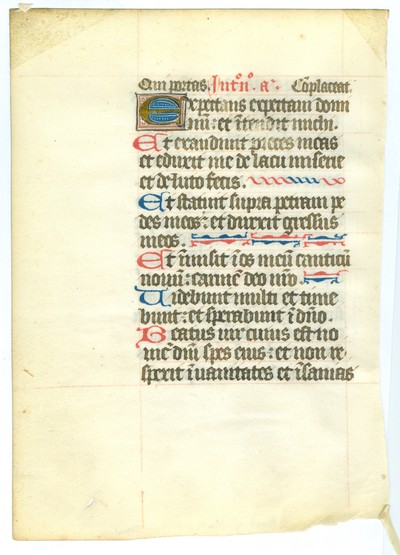 Cun portas. In to n. a. Cõplaceat.
Expectans expectaui domi
nũ: et ĩtendit michi.
Et exaudiuit preces meas
et eduxit me de lacu miserie
et de luto fecis.
Et statuit supra petram pe
des meos: et durexit gressus
meos.
Et ĩmisit ĩ os meũ canticũ
nouũ: carmẽ deo nr̃o.
Uidebunt multi et time
bunt: et sperabunt ĩ dño.
Beatus uir cuius est no
mẽ dñi spes eius: et non re
spexit ĩ uanitates et ĩsanias